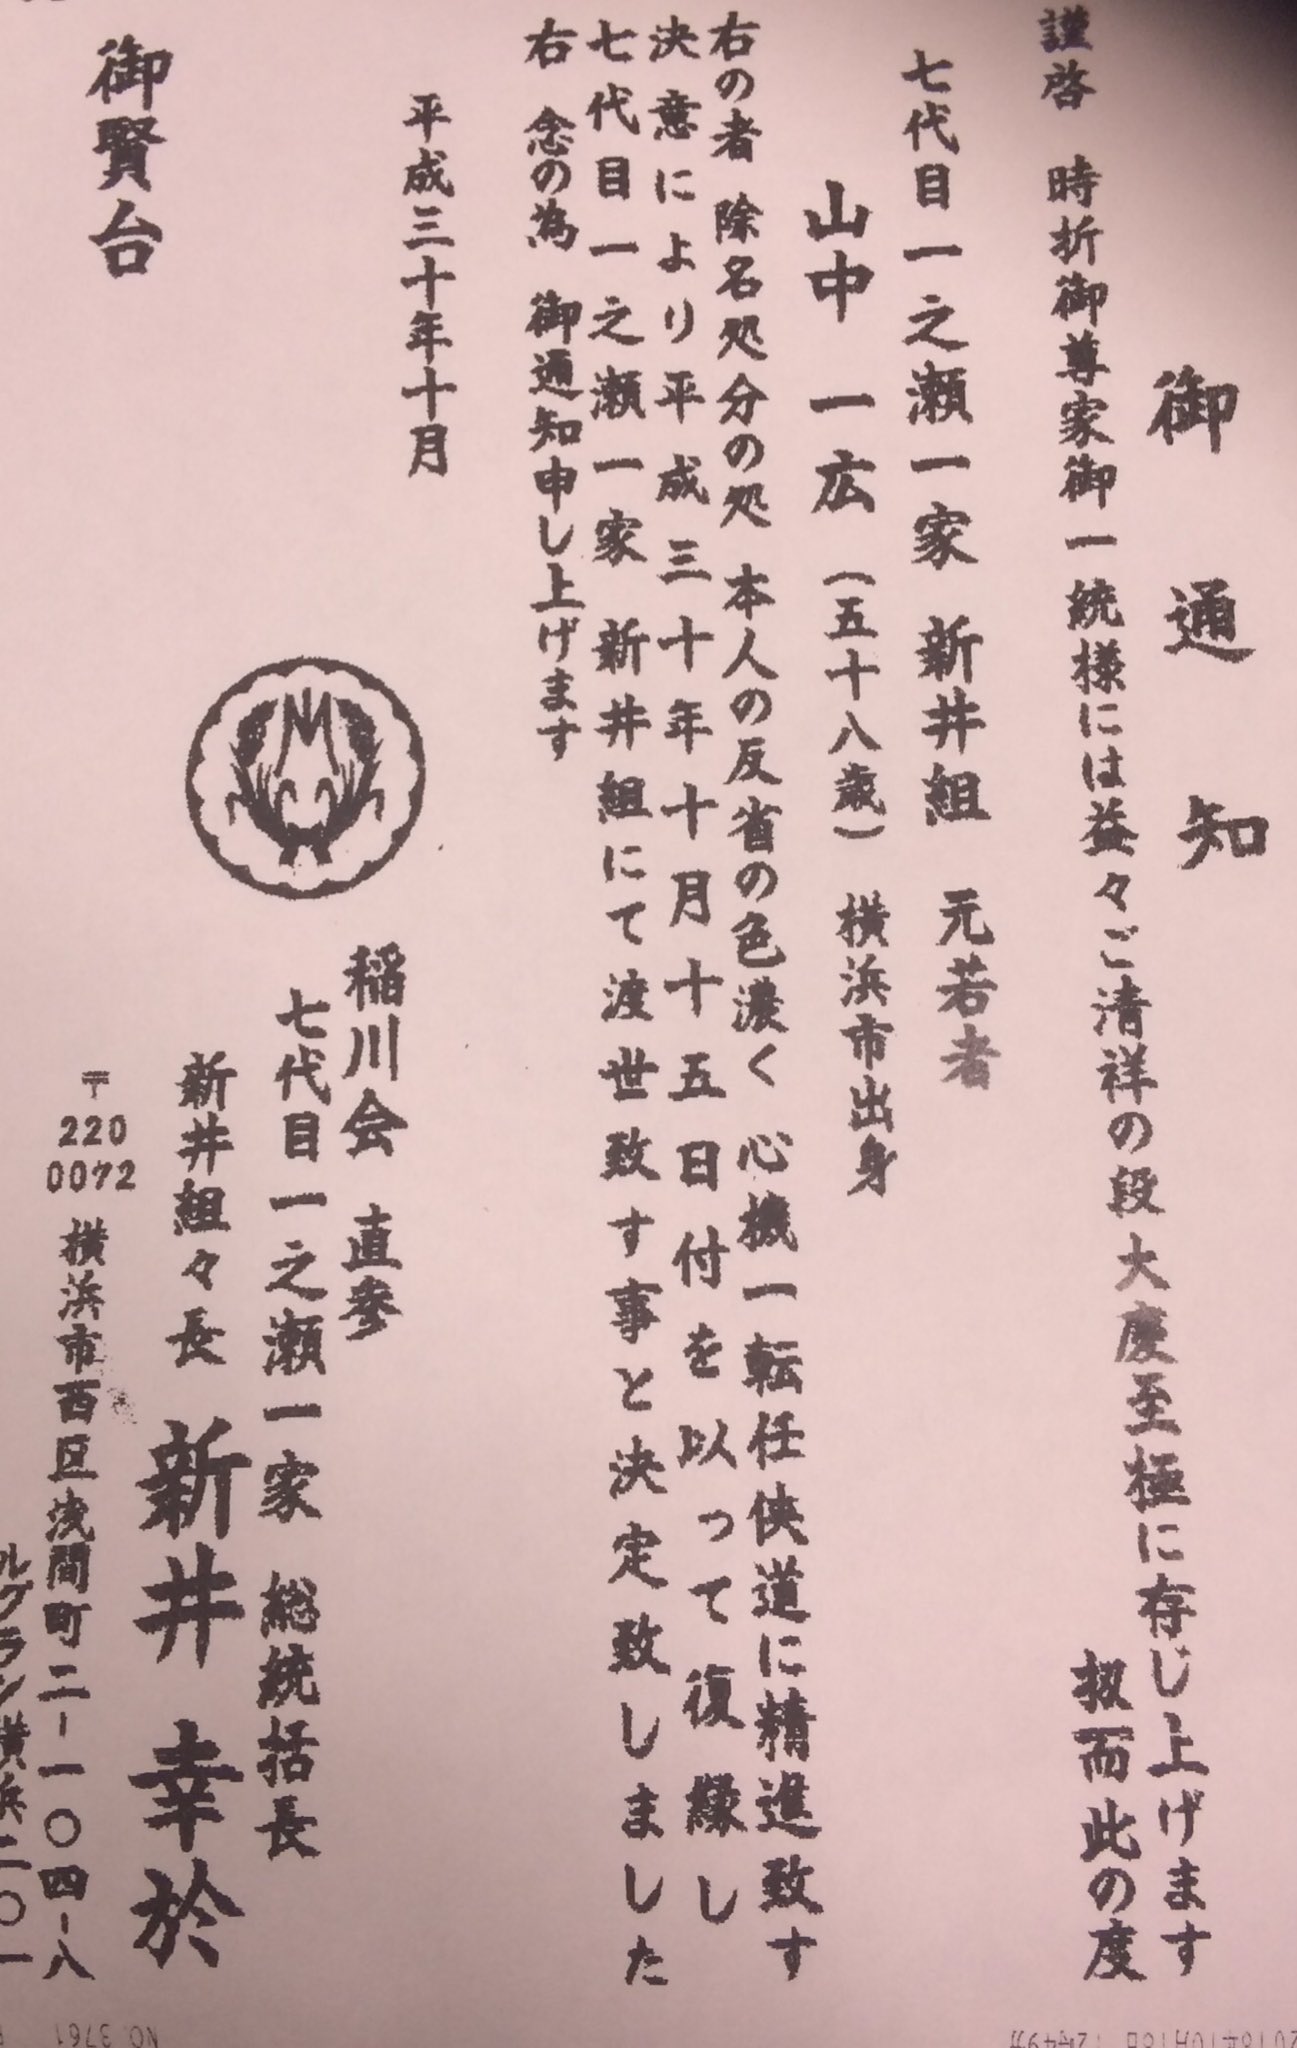 御通知
謹啓 時折御尊家御一統様には益々ご清祥の段大慶至極に存じ上げます
扨而此の度
七代目一之瀬一家 新井組 元若者
山中 一広 (五十八歳) 横浜市出身
右の者 除名処分の処 本人の反省の色濃く 心機一転任侠道に精進致す
決意により平成三十年十月十五日付を以って復縁し
七代目一之瀬一家 新井組にて渡世致す事と決定致しました
右 念の為 御通知申し上げます
平成三十年十月
稲川会 直参
七代目一之瀬一家 総統括長
新井組々長 新井 幸於
〒220 0072 横浜市西区浅間町二-一〇四-八
ルグラン横浜二〇一
御賢台
2018年10月18日 12時49分
NO. 3761